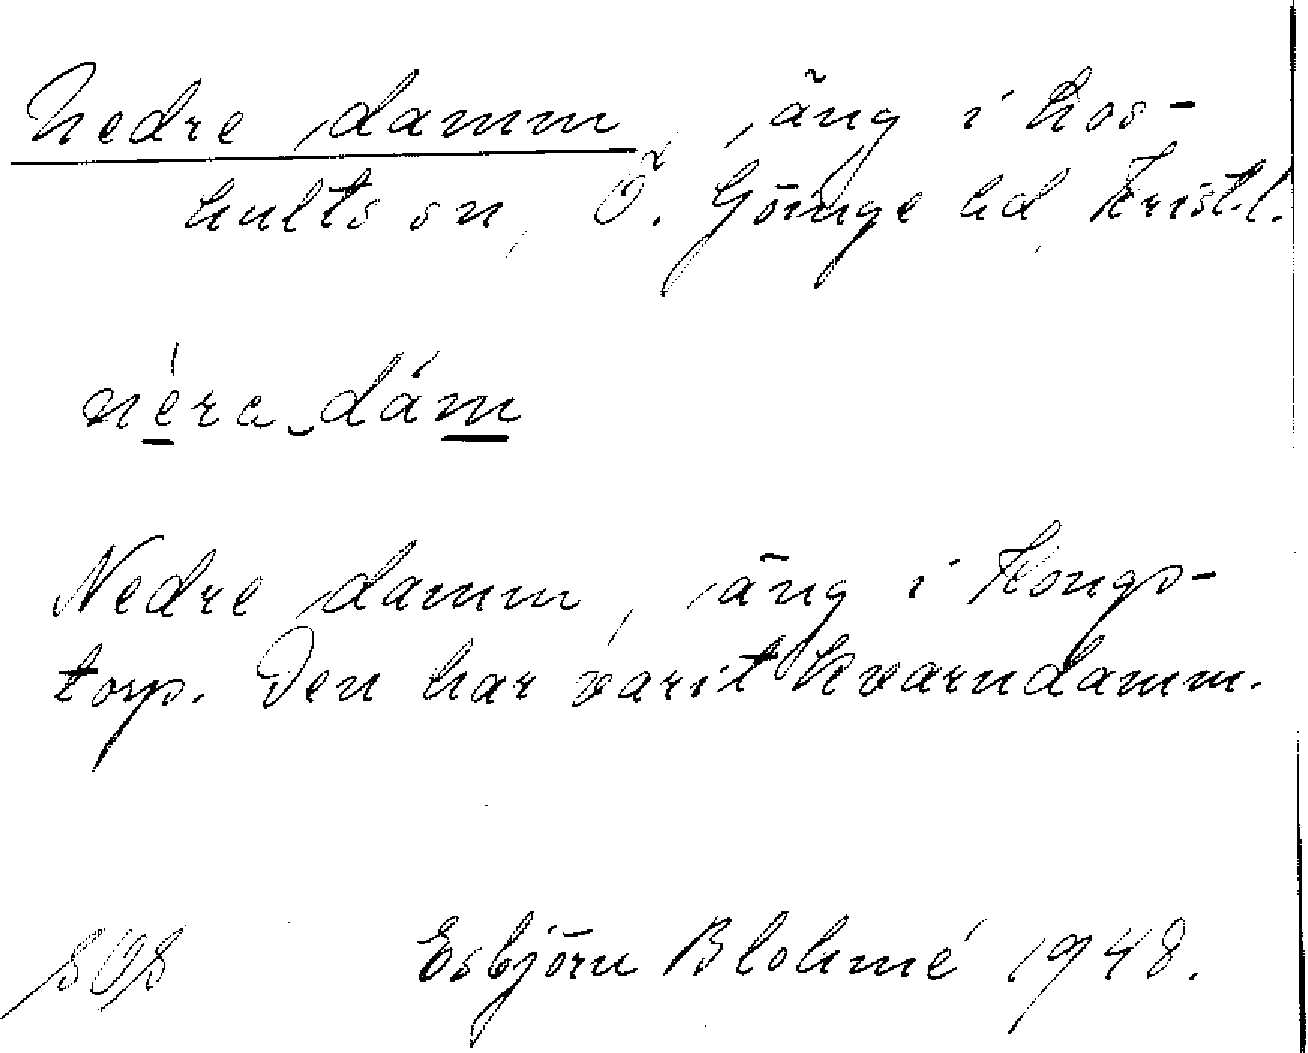 Nedre damm, äng i Los-
hults sn, Ö. Göinge hd, Krist.l.
nèra dám
Nedre damm, äng i Kongs-
torp. Den har varit kvarndamm.
Esbjörn Blohmé 1948.